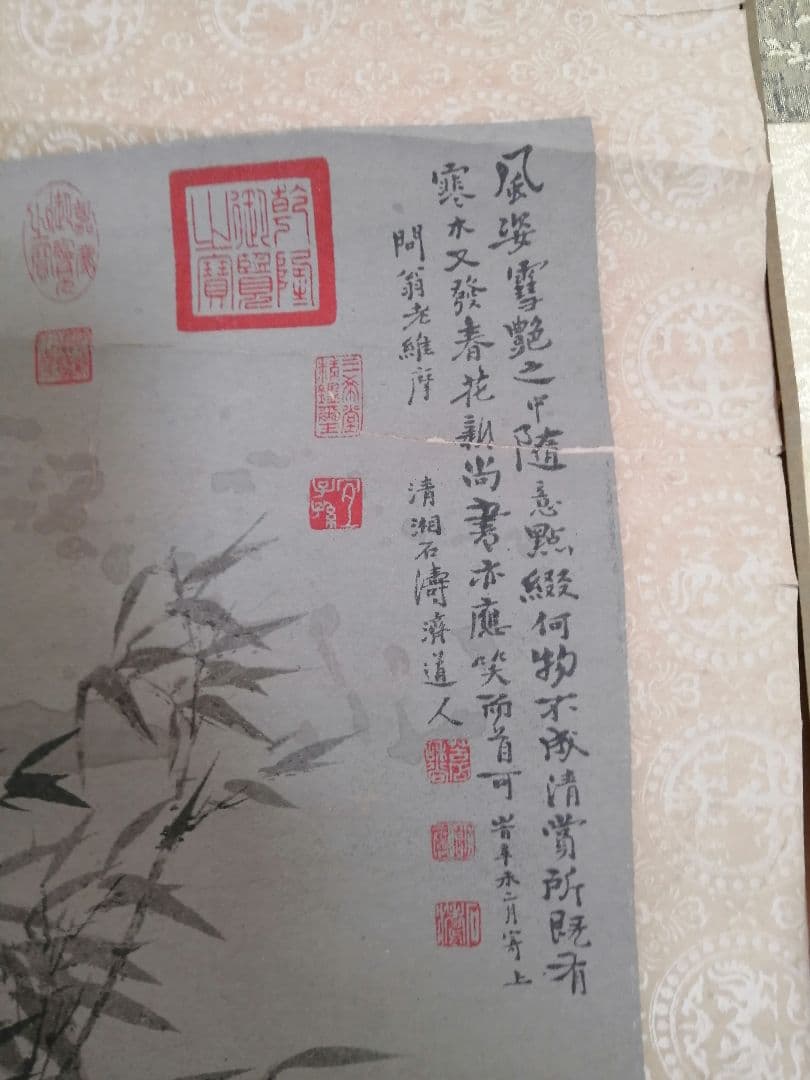 風姿雪艷之中隨意點綴何物不成清賞所既有
寒木又發春花新尚書亦應笑而首可
昔年永二月寄上
問翁老維摩
清湘石濤濟道人
乾隆御覽之寶
三希堂精鑑璽
宜子孫
嘉慶御覽之寶